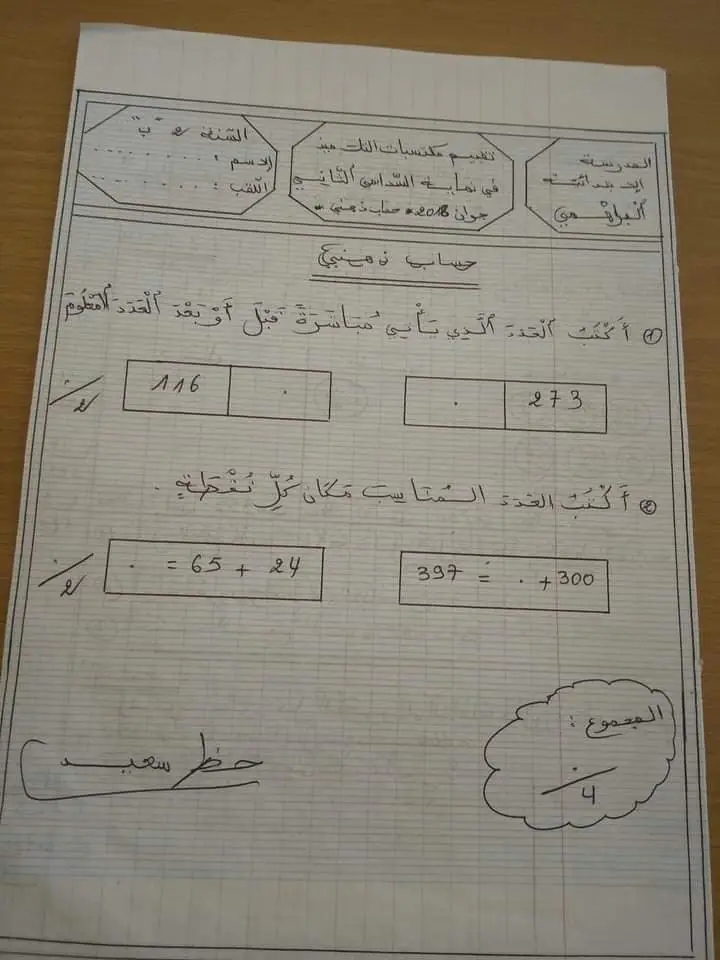 المدرسة
الابتدائية
البراهمي
تقييم مكتسبات التلاميذ
في نهاية السداسي الثاني
جوان 2018 حساب ذهني
السنة 2 "ب"
الاسم : . . . . . . . .
اللقب : . . . . . . . .
حساب ذهني
1 أَكْتُبُ الْعَدَدَ الَّذِي يَأْتِي مُبَاشَرَةً قَبْلَ أَوْ بَعْدَ الْعَدَدِ الْمَعْلُومِ
273 .
. 116
./2
2 أَكْتُبُ العَدَدَ المُنَاسِبَ مَكَانَ كُلِّ نُقْطَةٍ .
397 = . + 300
. = 65 + 24
./2
المجموع :
./4
حظ سعيد